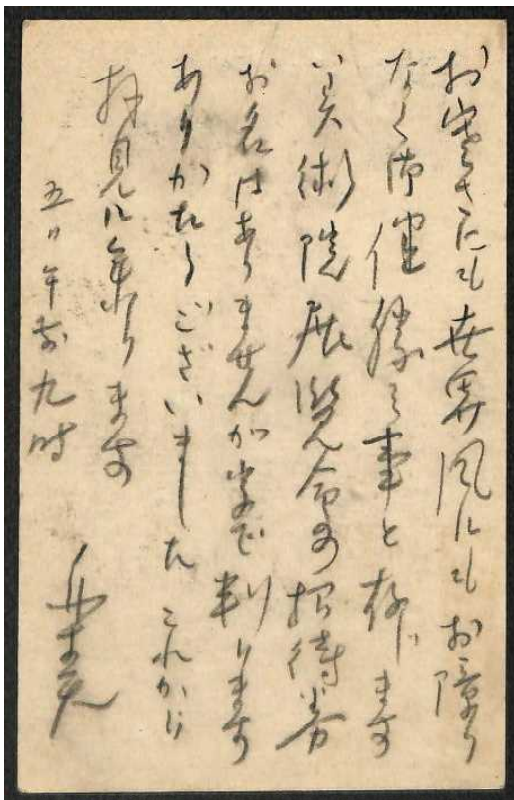 お寒さにも悪風にもお障り
なく御健勝の事と存じます
美術院展覧会の招待券
お名はありませんが字で判ります
ありがたうございました これから
拝見に参ります
五日午前九時